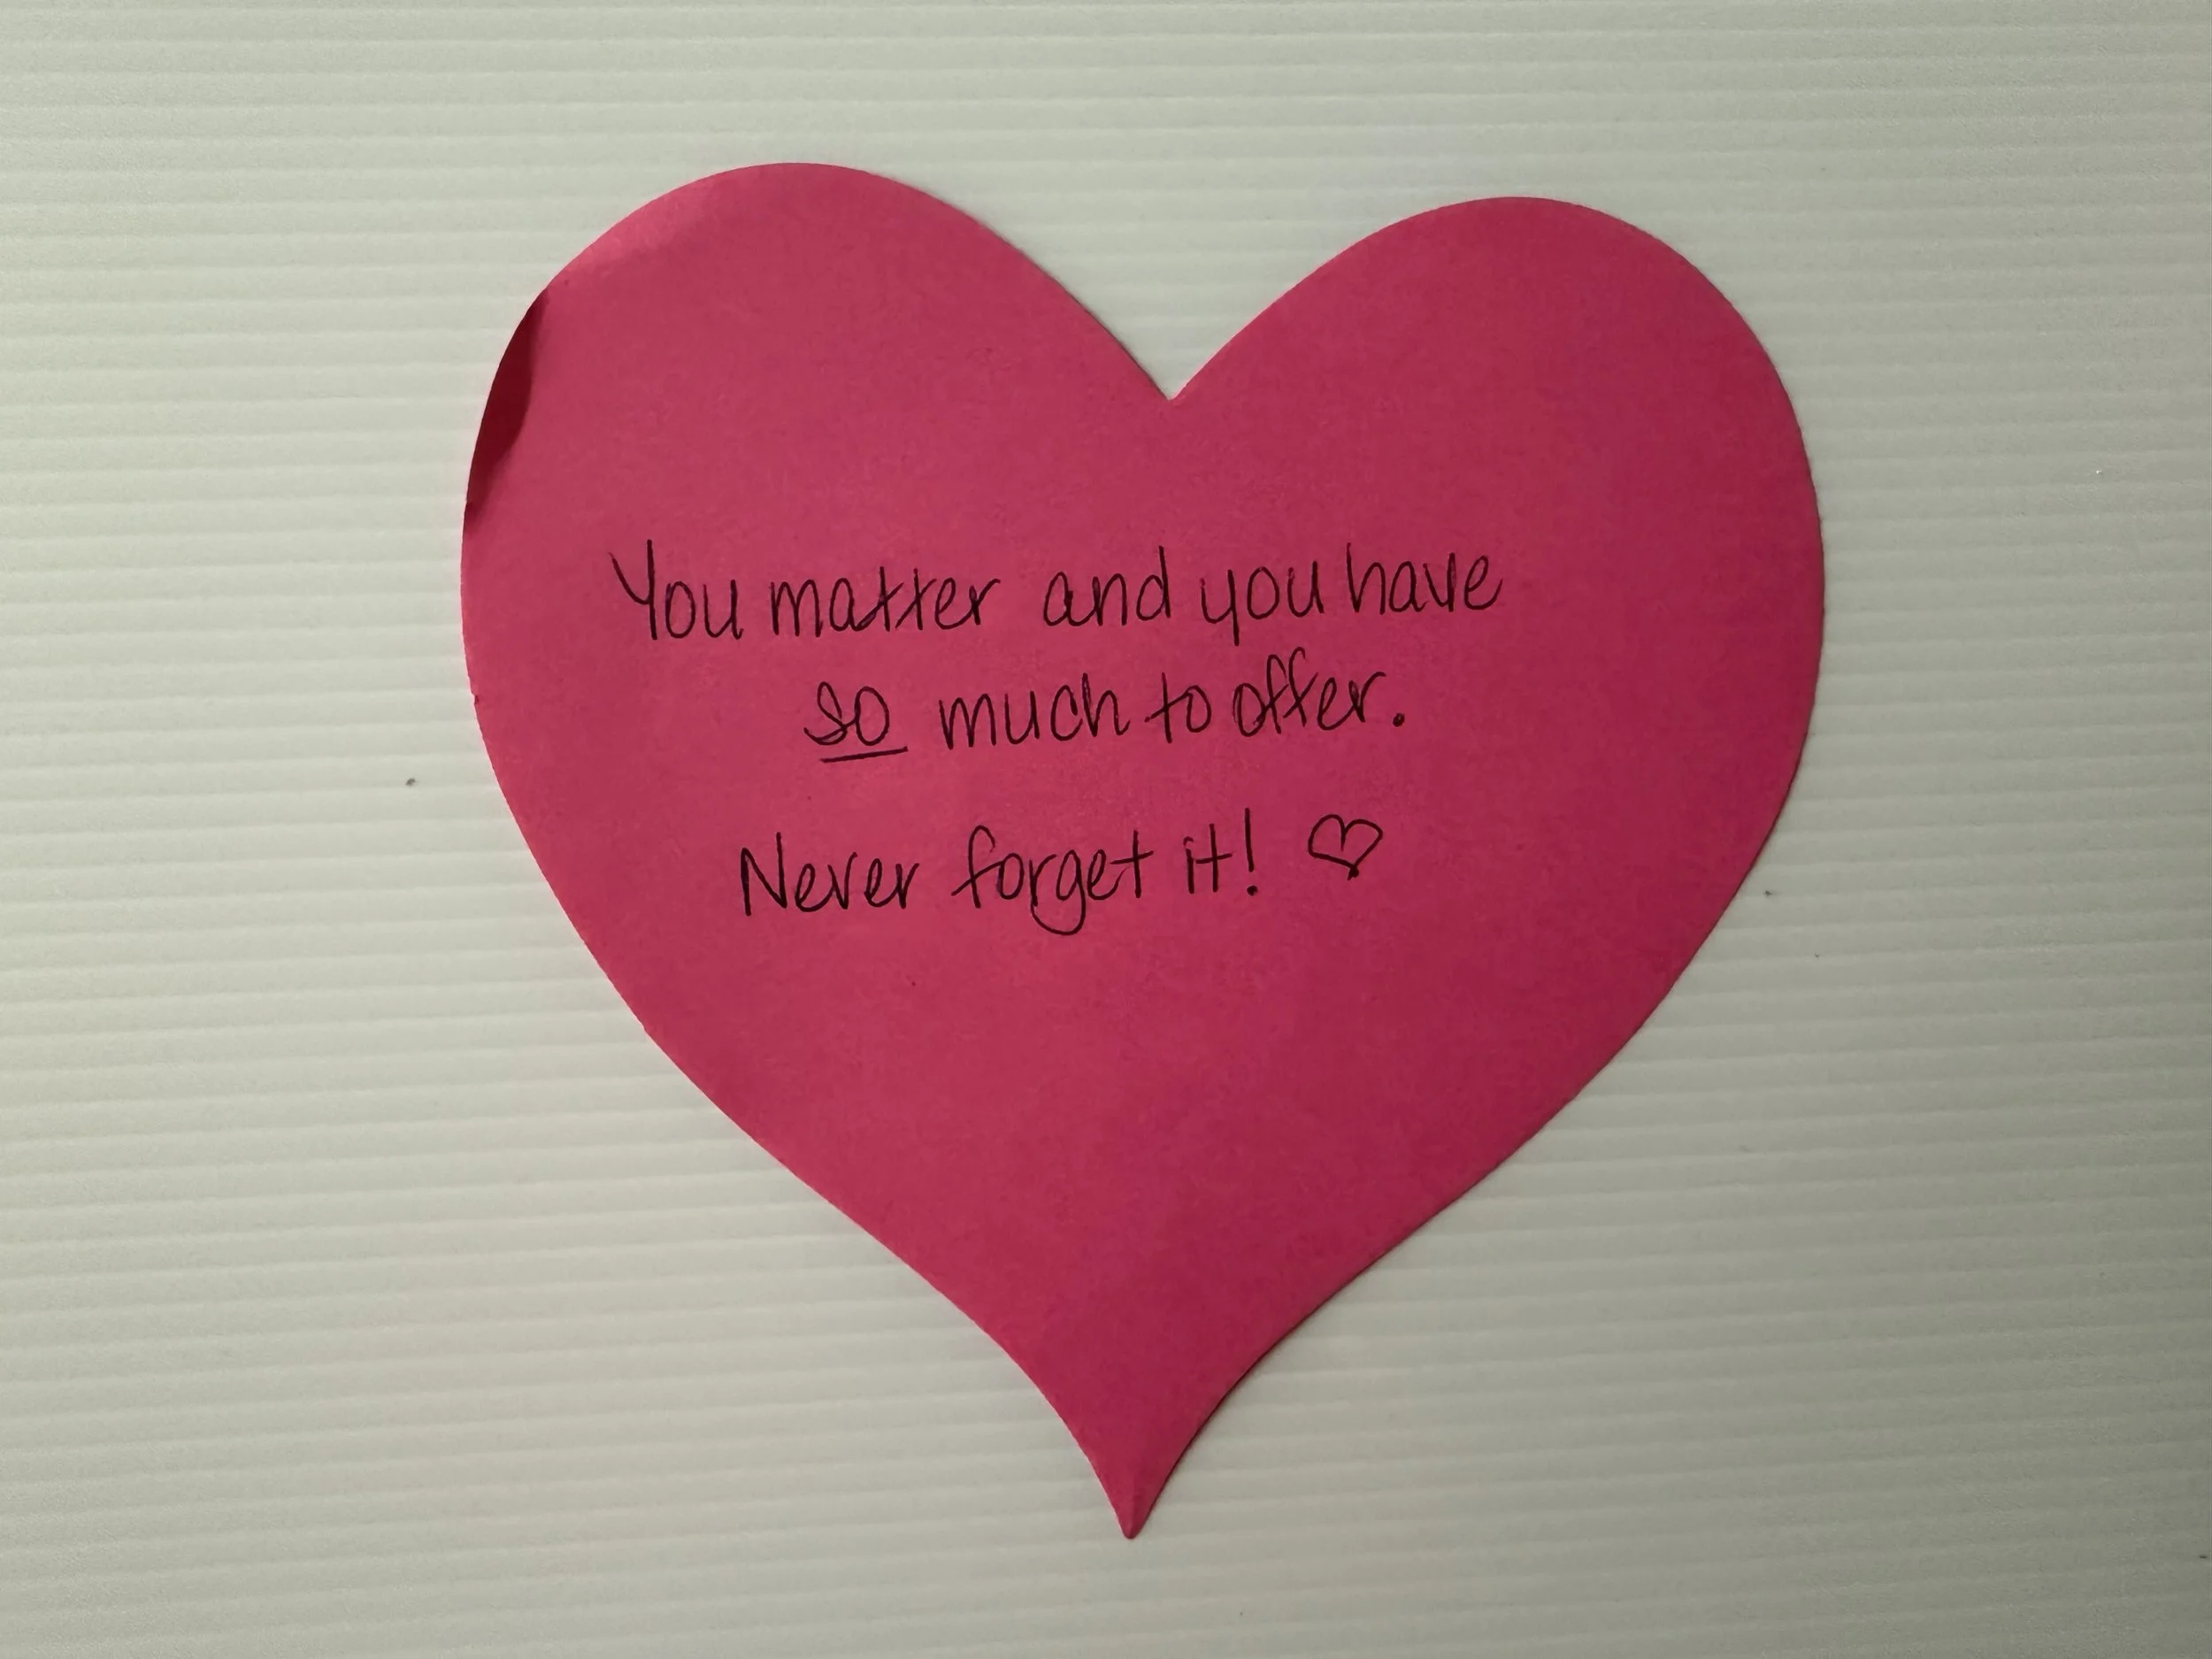 You matter and you have
so much to offer.
Never forget it! ♡